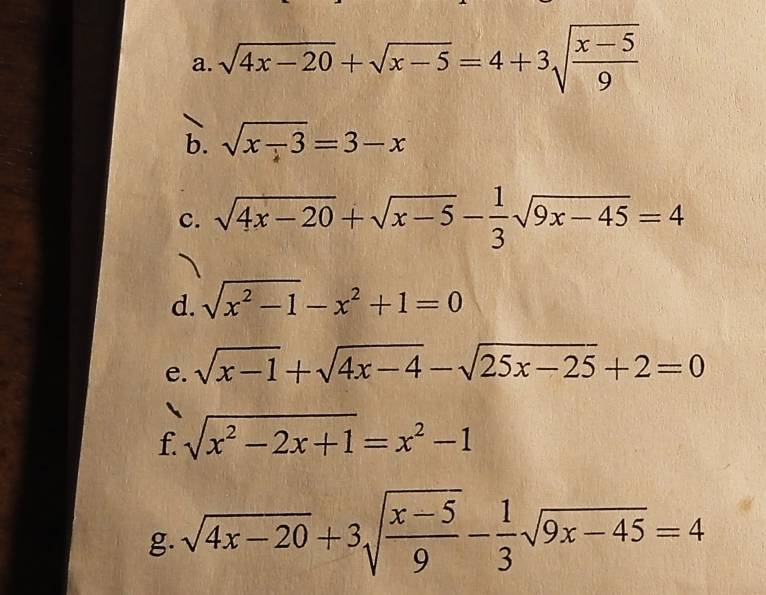 a. √(4x − 20) + √(x − 5) = 4 + 3√((x − 5)/9)
b. √(x − 3) = 3 − x
c. √(4x − 20) + √(x − 5) − 1/3 √(9x − 45) = 4
d. √(x² − 1) − x² + 1 = 0
e. √(x − 1) + √(4x − 4) − √(25x − 25) + 2 = 0
f. √(x² − 2x + 1) = x² − 1
g. √(4x − 20) + 3√((x − 5)/9) − 1/3 √(9x − 45) = 4